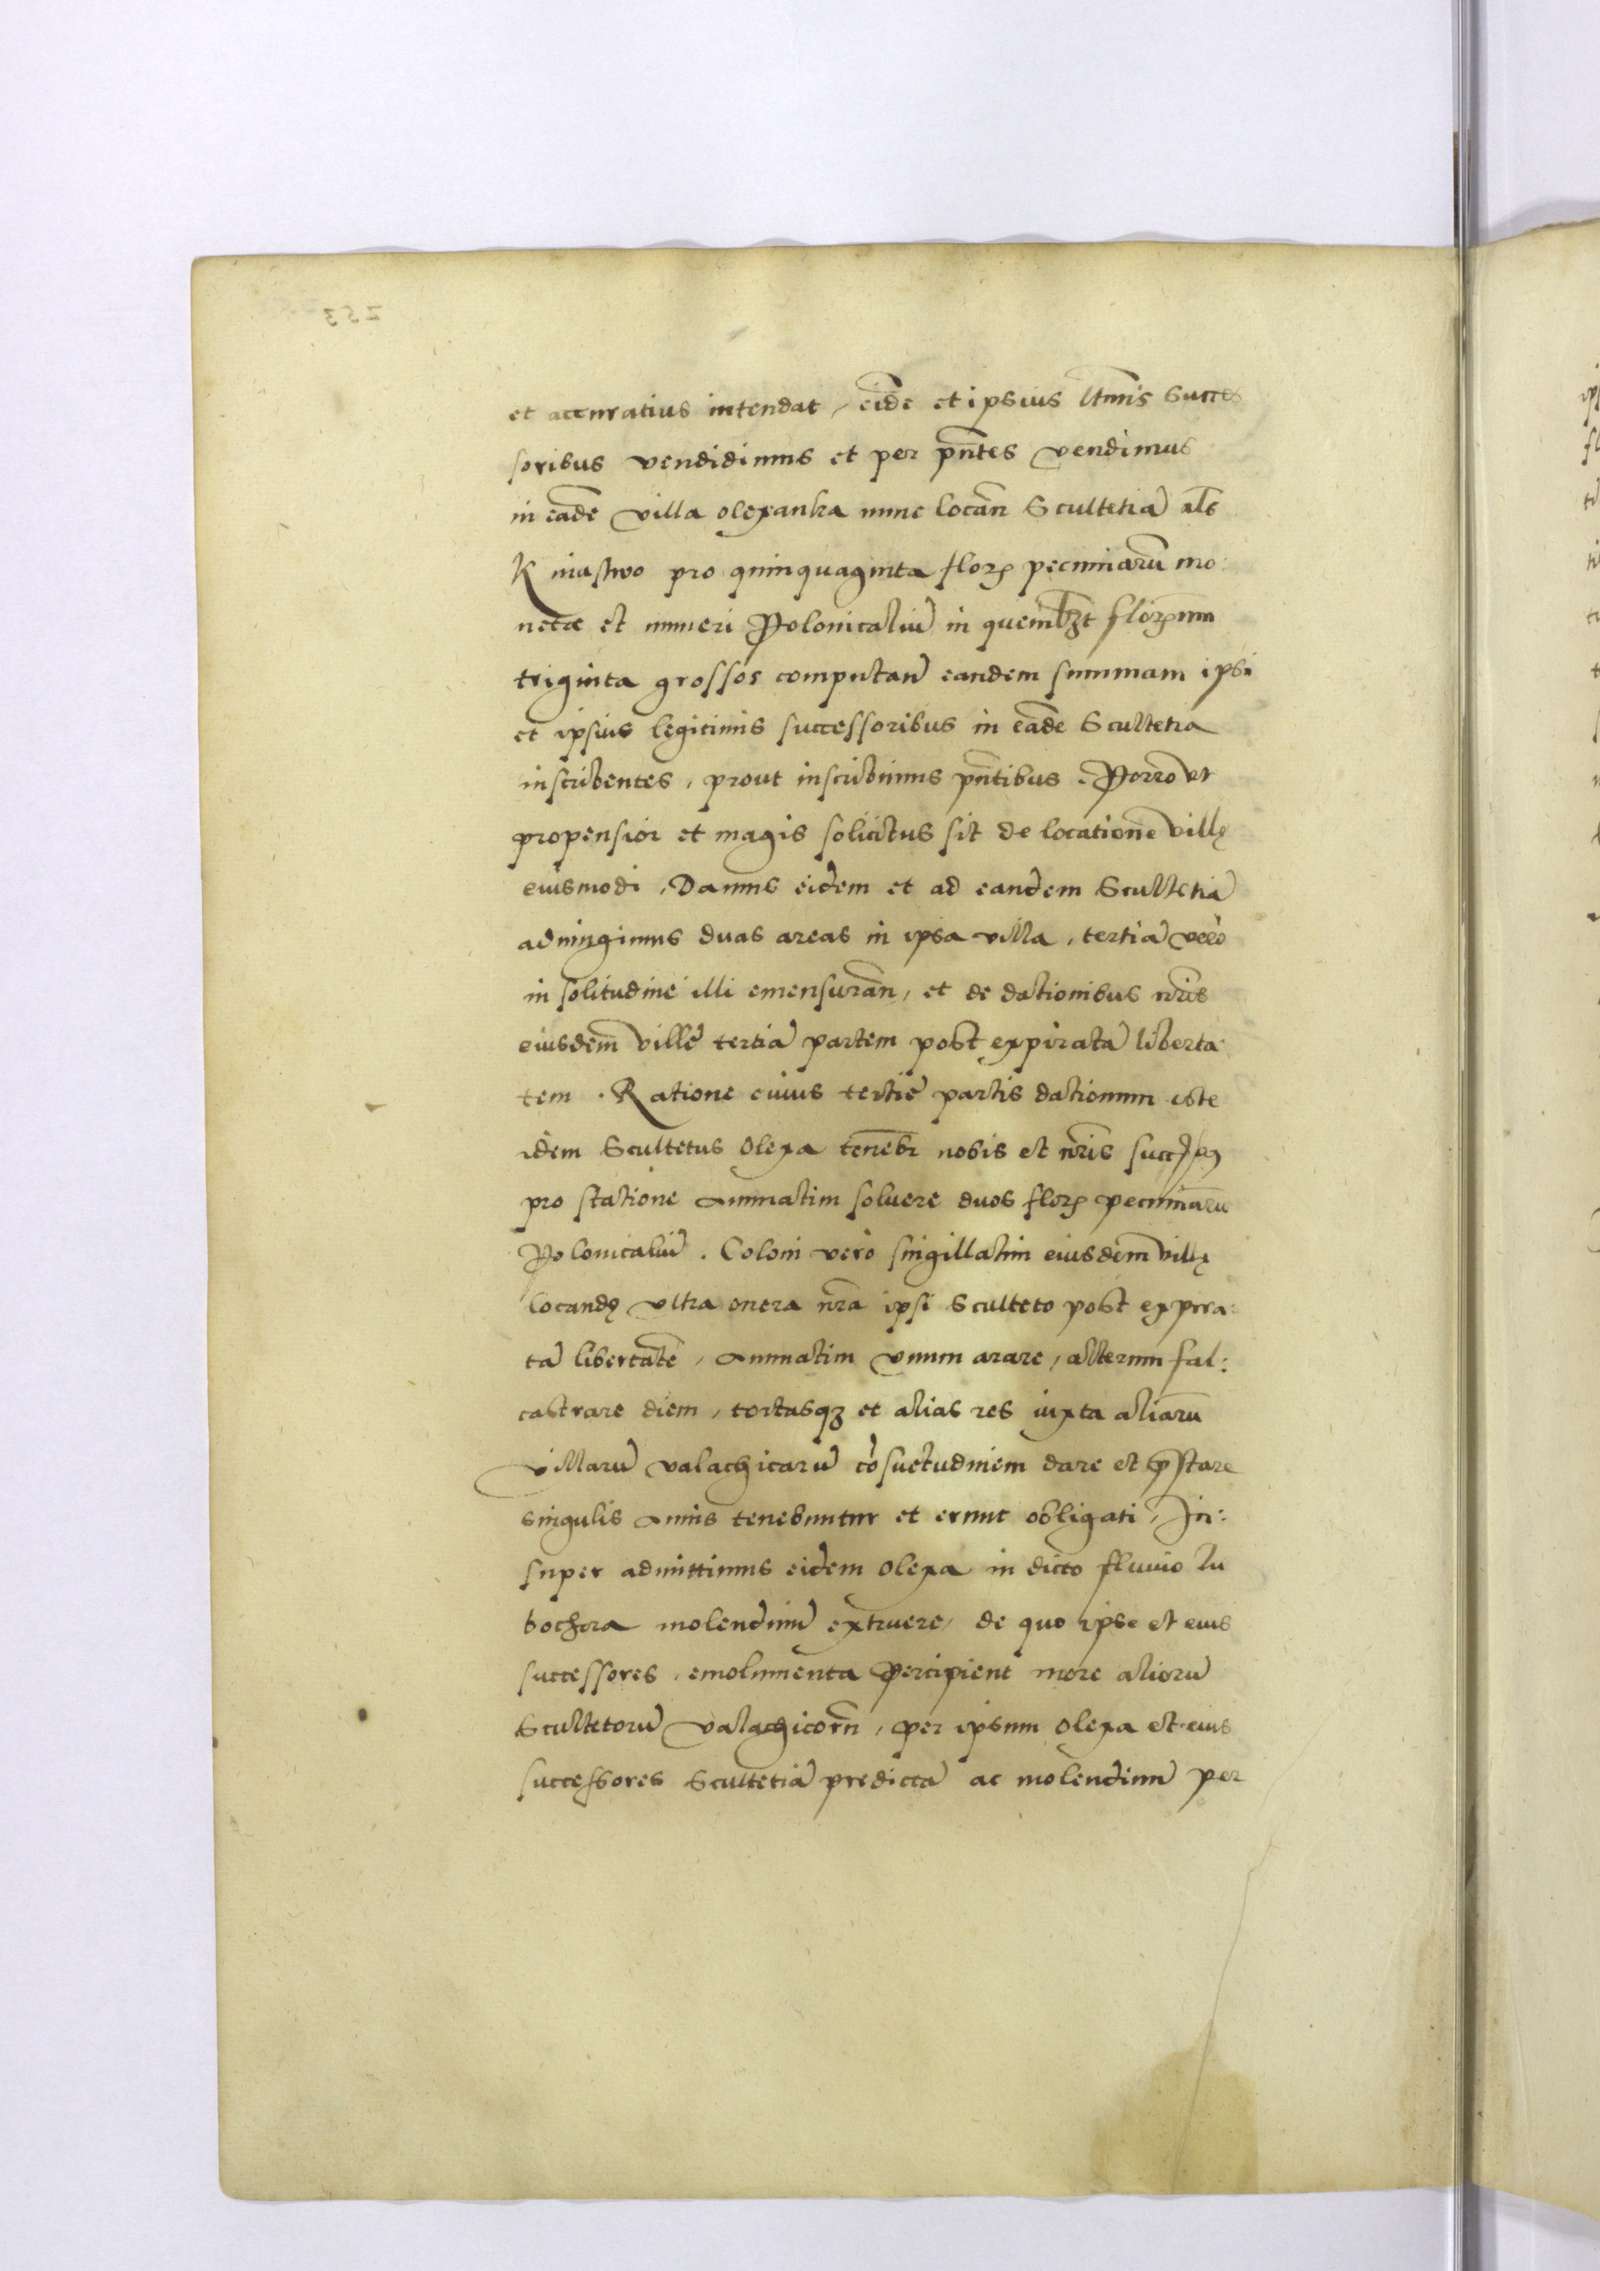 et accuratius intendat, eidē et ipsius ltīmis Succes
soribus vendidimus et per pn̄tes vendimus
in eādē villa olexanka nunc locan̄ Scultetiā al̄s
Kniastwo pro quinquaginta floꝝ pecuniarū mo:
netæ et numeri Polonicaliū in quemlꝫt floꝝnum
triginta grossos computan̄ eandem summam ipsi
et ipsius legitimis successoribus in eādē Scultetia
inscribentes, prout inscribimus pn̄tibus. Porro vt
propensior et magis solicitus sit de locatione villę
eiusmodi, Damus eidem et ad eandem Scultetiā
adiungimus duas areas in ipsa villa, tertiā vero
in solitudine illi emensuran̄, et de dationibus nr̄is
eiusdem villę tertiā partem post expiratā liberta
tem. Ratione cuius tertie partis dationum iste
idem Scultetus Olexa tenebr̄ nobis et nr̄is
pro statione annuatim soluere duos floꝝ pecuniarū
Polonicaliū. Coloni vero singillatim eiusdem villę
locandę vltra onera nr̄a ipsi Sculteto post expira:
tā libertatē, annuatim vnum arare, alterum fal:
castrare diem, tortasqꝫ et alias res iuxta aliarū
villarū valachicarū cōsuetudinem dare et p̄stare
singulis annis tenebuntur et erunt obligati, In:
super admittimus eidem Olexa in dicto fluuio lu
bochora molendinū extruere, de quo ipse et eius
successores, emolumenta percipient more aliorū
Scultetorū valachicorū, per ipsum Olexa et eius
successores Scultetiā predictā ac molendinū per
253